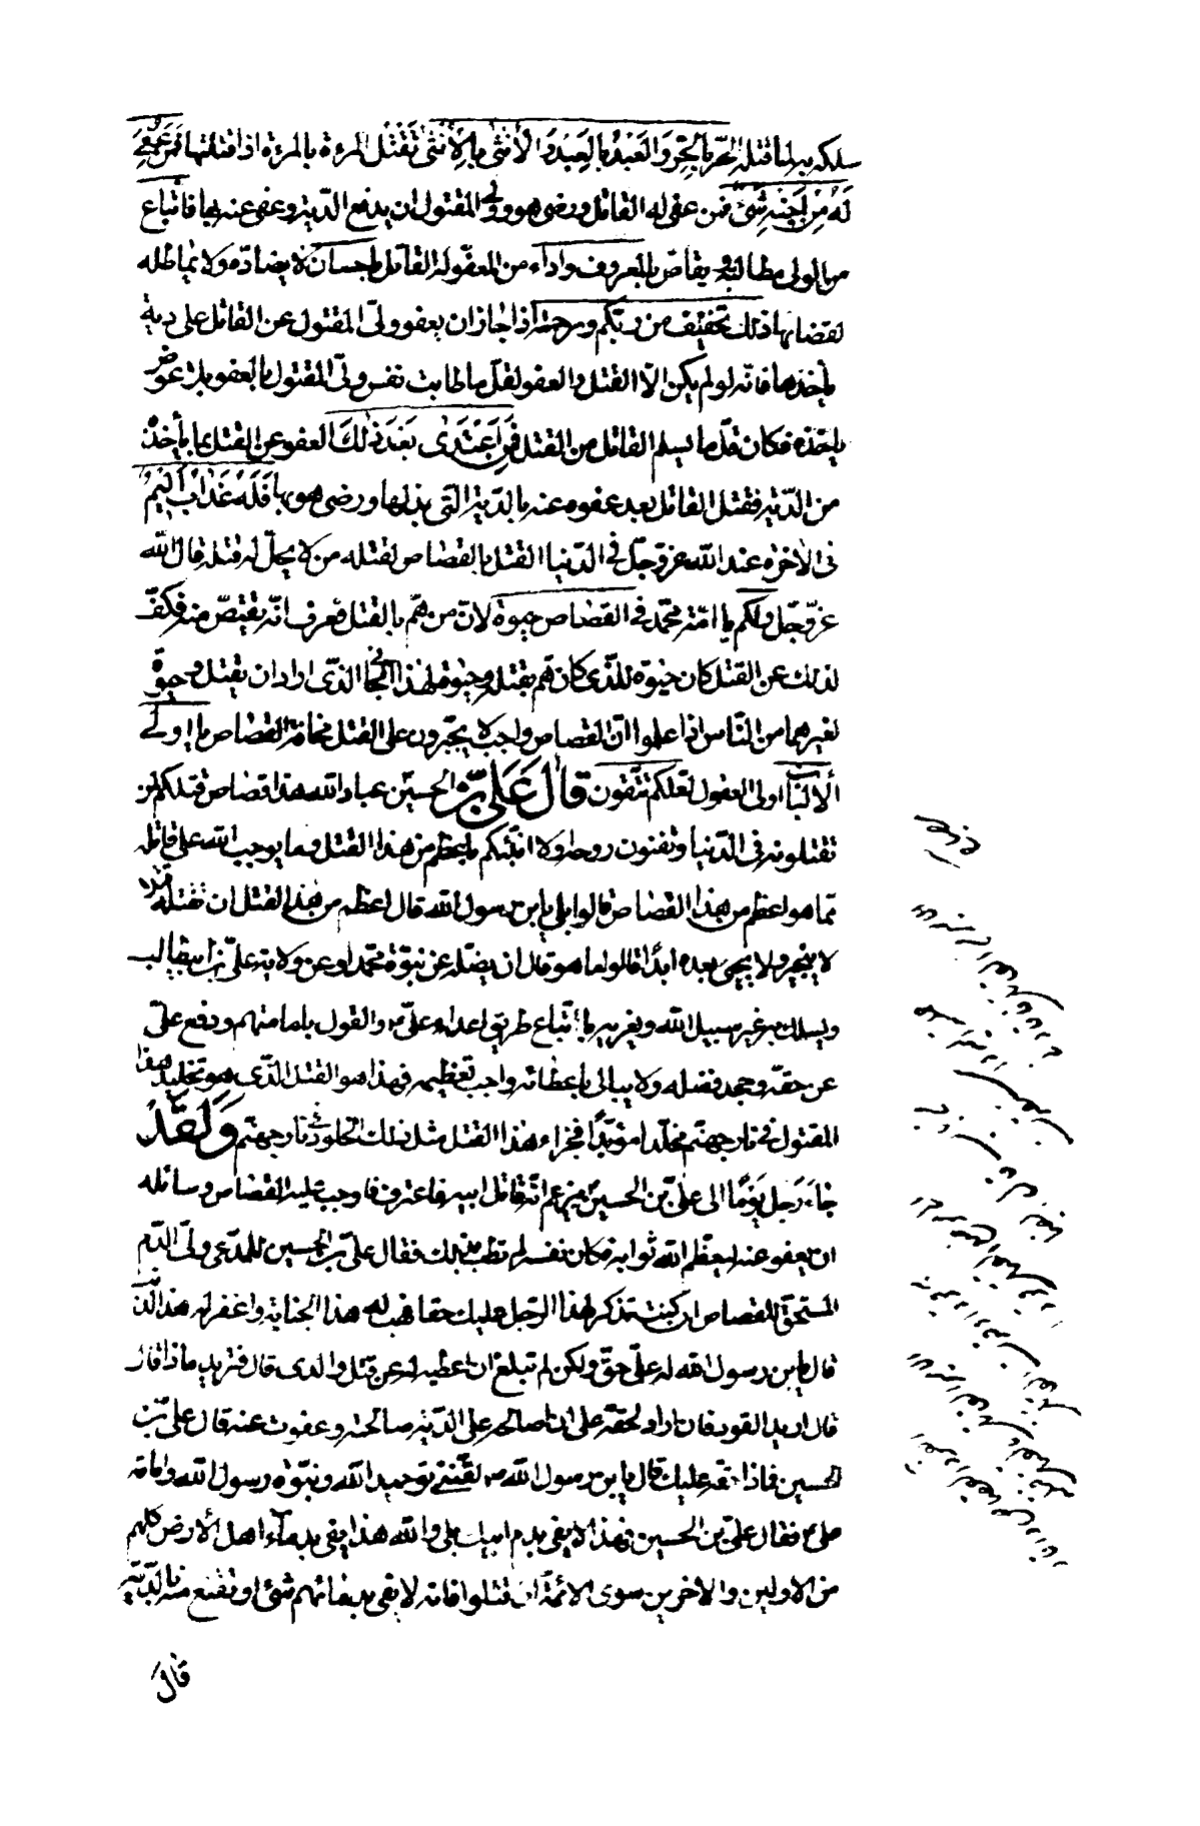 سلكه به لما قتله الحُرّ بِالحُرِّ وَالعَبْدُ بِالعَبْدِ وَالأُنْثى بِالأُنْثى تَقْتُل المرءة بالمرءة اذا قتلتها فَمَنْ عُفِيَ
لَهُ مِنْ اَخِيهِ شَىْءٌ فمن عفى له القاتل ورضى هو وولى المقتول ان يدفع الدّية وعفى عنه بها فاتباع
من الولى مطالبة ويقاصّ بالمعروف واداء من المعفوّ له القاتل باحسان لا يضادّه ولا يماطله
لقضائها ذلك تخفيف من ربّكم ورحمة اذا جاز ان يعفو ولىّ المقتول عن القاتل على دية
ياخذها فانّه لو لم يكن الّا القتل والعفو لقلّ ما طابت نفس ولىّ المقتول بالعفو بلا عوض
ياخذه فكان قلّ ما يسلم القاتل من القتل فَمَنِ اعْتَدى بَعْدَ ذلِكَ العفو عن القتل بما ياخذه
من الدّية فقتل القاتل بعد عفوه عنه بالدّية الّتى بذلها ورضى هو بها فَلَهُ عَذابٌ اَلِيمٌ
فى الاخرة عند الله عزّ وجلّ فى الدّنيا القتل بالقصاص لقتله من لا يحلّ له قتله قال الله
عزّ وجلّ ولكم يا امّة محمّد فى القصاص حيوة لانّ من همّ بالقتل فعرف انّه يقتصّ منه فكفّ
لذلك عن القتل كان حيوة للّذى كان همّ بقتله وحيوة لهذا الجانى الذّى اراد ان يقتل وحيوة
لغيرهما من النّاس اذا علموا انّ القصاص واجب لا يجترون على القتل مخافة القصاص يا اولى
الالباب اولى العقول لعلّكم تتّقون قال عَلىّ بْن الحسين عباد الله هذا قصاص قتلكم لمن
تقتلونه فى الدّنيا وتفنون روحه اولا انبّئكم باعظم من هذا القتل وما يوجب الله على قاتله
ممّا هو اعظم من هذا القصاص قالوا بلى يا بن رسول الله قال اعظم من هذا القتل ان تقتله قتلا
لا ينجبر ولا يحيى بعده ابدًا قالوا ما هو قال ان يضلّه عن نبوّة محمّد او عن ولاية علىّ بن ابيطالب
ويسلك به غير سبيل الله ويغريه باتّباع طريق اعداء علىّ والقول بامامتهم ودفع علىّ
عن حقّه وجحد فضله ولا يبالى باعطائه واجب تعظيمه فهذا هو القتل الذّى هو تخليد هذا
المقتول فى نار جهنّم مخلّدا مؤبّدًا فجزاء هذا القتل مثل ذلك الخلود فى نار جهنّم وَلَقَدْ
جاءَ رَجل يَوْمًا الى علىّ بن الحسين برجل يزعم انّه قاتل ابيه فاعترف فاوجب عليه القصاص وسائله
ان يعفو عنه ليعظّم الله ثوابه فكان نفسه لم تطب بذلك فقال علىّ بن الحسين للمدّعى ولىّ الدّم
المستحقّ للقصاص ان كنت تذكر لهذا الرّجل عليك حقا فهب له هذا الجناية واغفر له هذا الذّنب
قال يا بن رسول الله له علىّ حقّ ولكن لم تبلغ ان اعطيه له عن قتل والدى قال فتريد ماذا قال
قال اريد القود فان اراد لحقّه على ان اصالحه على الدّية صالحته وعفوت عنه قال علىّ بن
الحسين فماذا حقّه عليك قال يا بن رسول الله لقّننى توحيد الله ونبوّة رسول الله وامامة
على فقال علىّ بن الحسين فهذا لا يفى بدم ابيك بلى والله هذا يفى بدماء اهل الارض كلهم
من الاولين والاخرين سوى الائمّة ان قتلوا فانه لا يفى بدمائهم شئ او تقنع منه بالدّية
قال